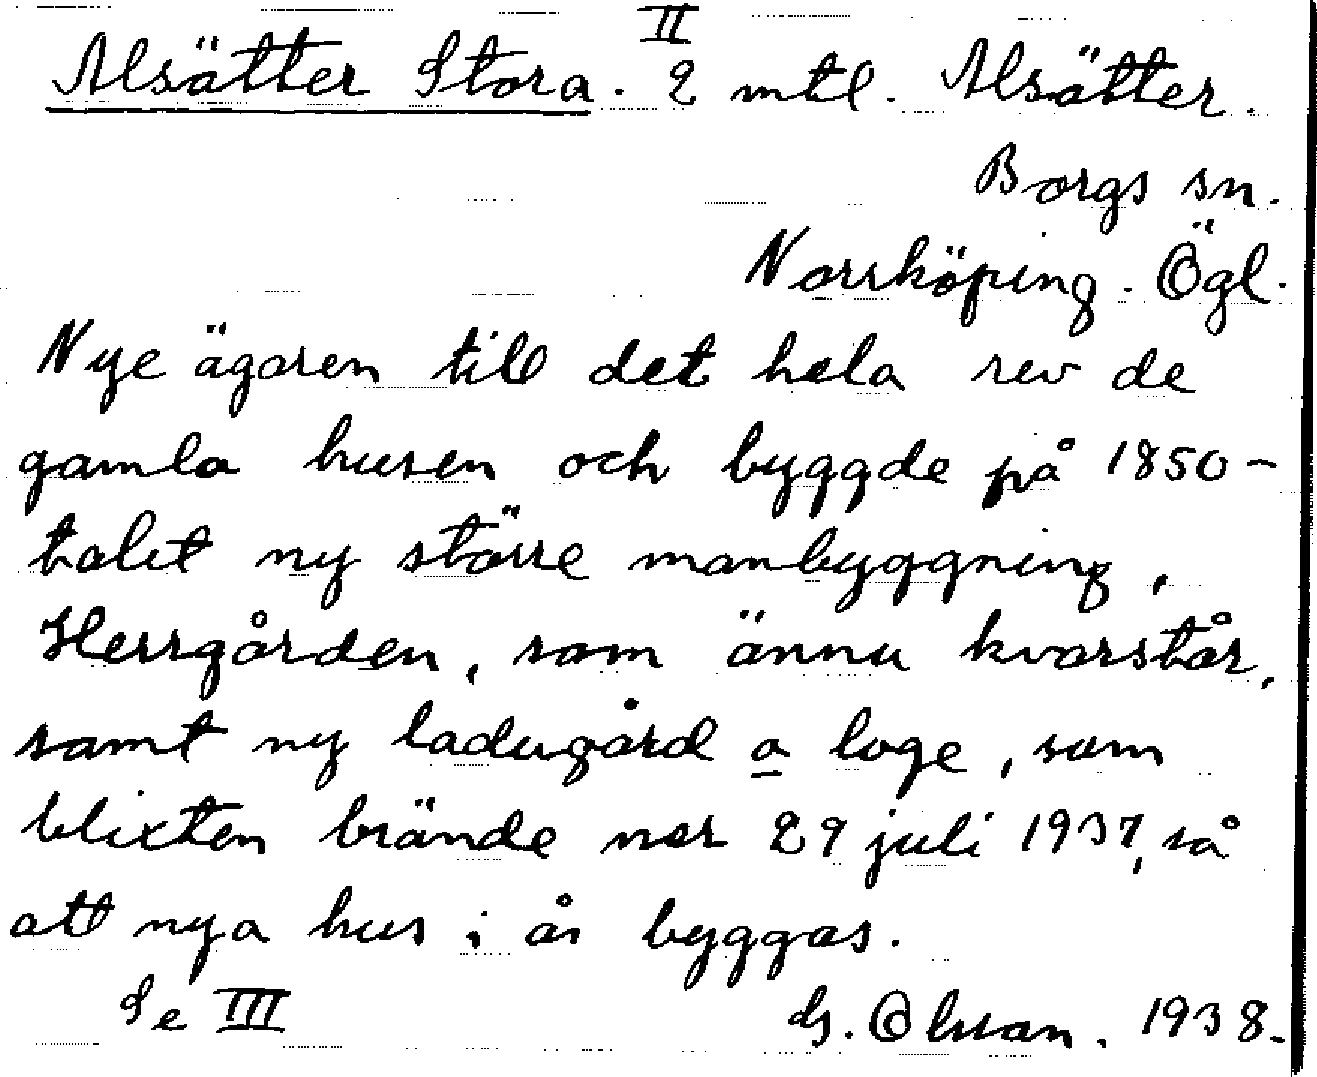 II
Alsätter Stora. 2 mtl. Alsätter.
Borgs sn.
Norrköping. Ögl.
Nye ägaren till det hela rev de
gamla husen och byggde på 1850-
talet ny större manbyggning,
Herrgården, som ännu kvarstår,
samt ny ladugård o loge, som
blixten brände ner 29 juli 1937, så
att nya hus i år byggas.
Se III
G. Olsson. 1938.